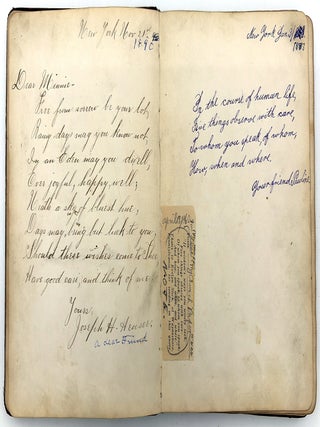 New York Nov 21st
1890
Dear Minnie-
Free from sorrow be your lot,
Many days may you know not
In an Eden may you dwell,
Ever joyful, happy, well;
'Neath a sky of bluest hue,
Days may bring but luck to you,
Should three wishes come to thee
Have good care, and think of me.
Yours,
Joseph H.
a dear Friend
New York Jan
In the course of human life,
Five things observe with care,
To whom you speak, of whom,
How, when and where.
Your friend